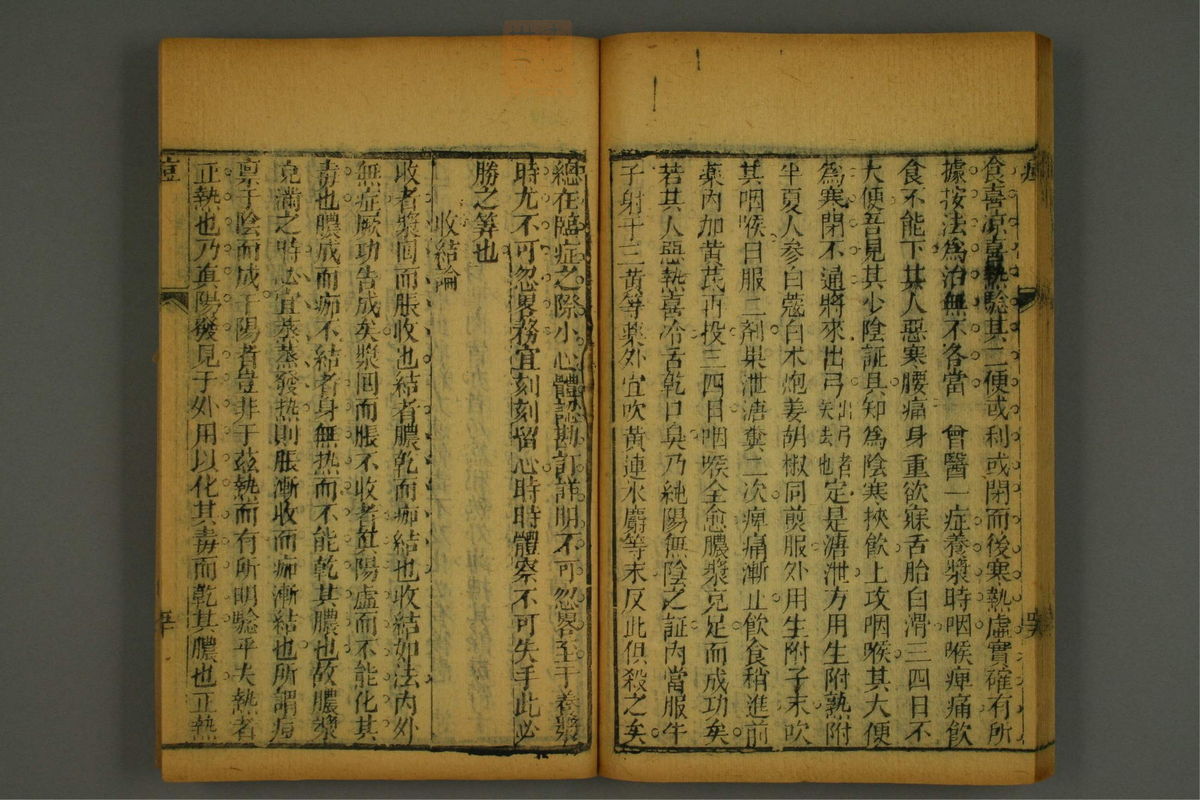 食喜凉喜熱驗其二便或利或閉而後寒熱虛實確有所
據按法爲治無不各當　曾醫一症養漿時咽喉痺痛飲
食不能下其人惡寒腰痛身重欲寐舌胎白滑三四日不
大便吾見其少陰証具知爲陰寒挾飲上攻咽喉其大便
爲寒閉不通將來出弓定是溏泄方用生附熟附
半夏人參白蔻白术炮姜胡椒同煎服外用生附子末吹
其咽喉日服二剤果泄溏糞二次痺痛漸止飲食稍進前
藥內加黃芪再投三四日咽喉全愈膿漿克足而成功矣
若其人惡熱喜冷舌乾口臭乃純陽無陰之証內當服牛
子射干三黃等藥外宜吹黃連氷麝等末反此俱殺之矣
總在臨症之際小心體認勘訂詳明不可忽畧至于養漿
時尤不可忽畧務宜刻刻留心時時體察不可失手此必
勝之筭也
收結論
收者漿囘而脹收也結者膿乾而痂結也收結如法內外
無症厥功告成矣漿囘而脹不收者真陽虛而不能化其
毒也膿成而痂不結者身無热而不能乾其膿也故膿漿
克滿之時必宜蒸蒸發热則脹漸收而痂漸結也所謂痘
稟于陰而成于陽者豈非于兹熱而有所明驗乎夫熱者
正熱也乃真陽發見于外用以化其毒而乾其膿也正熱